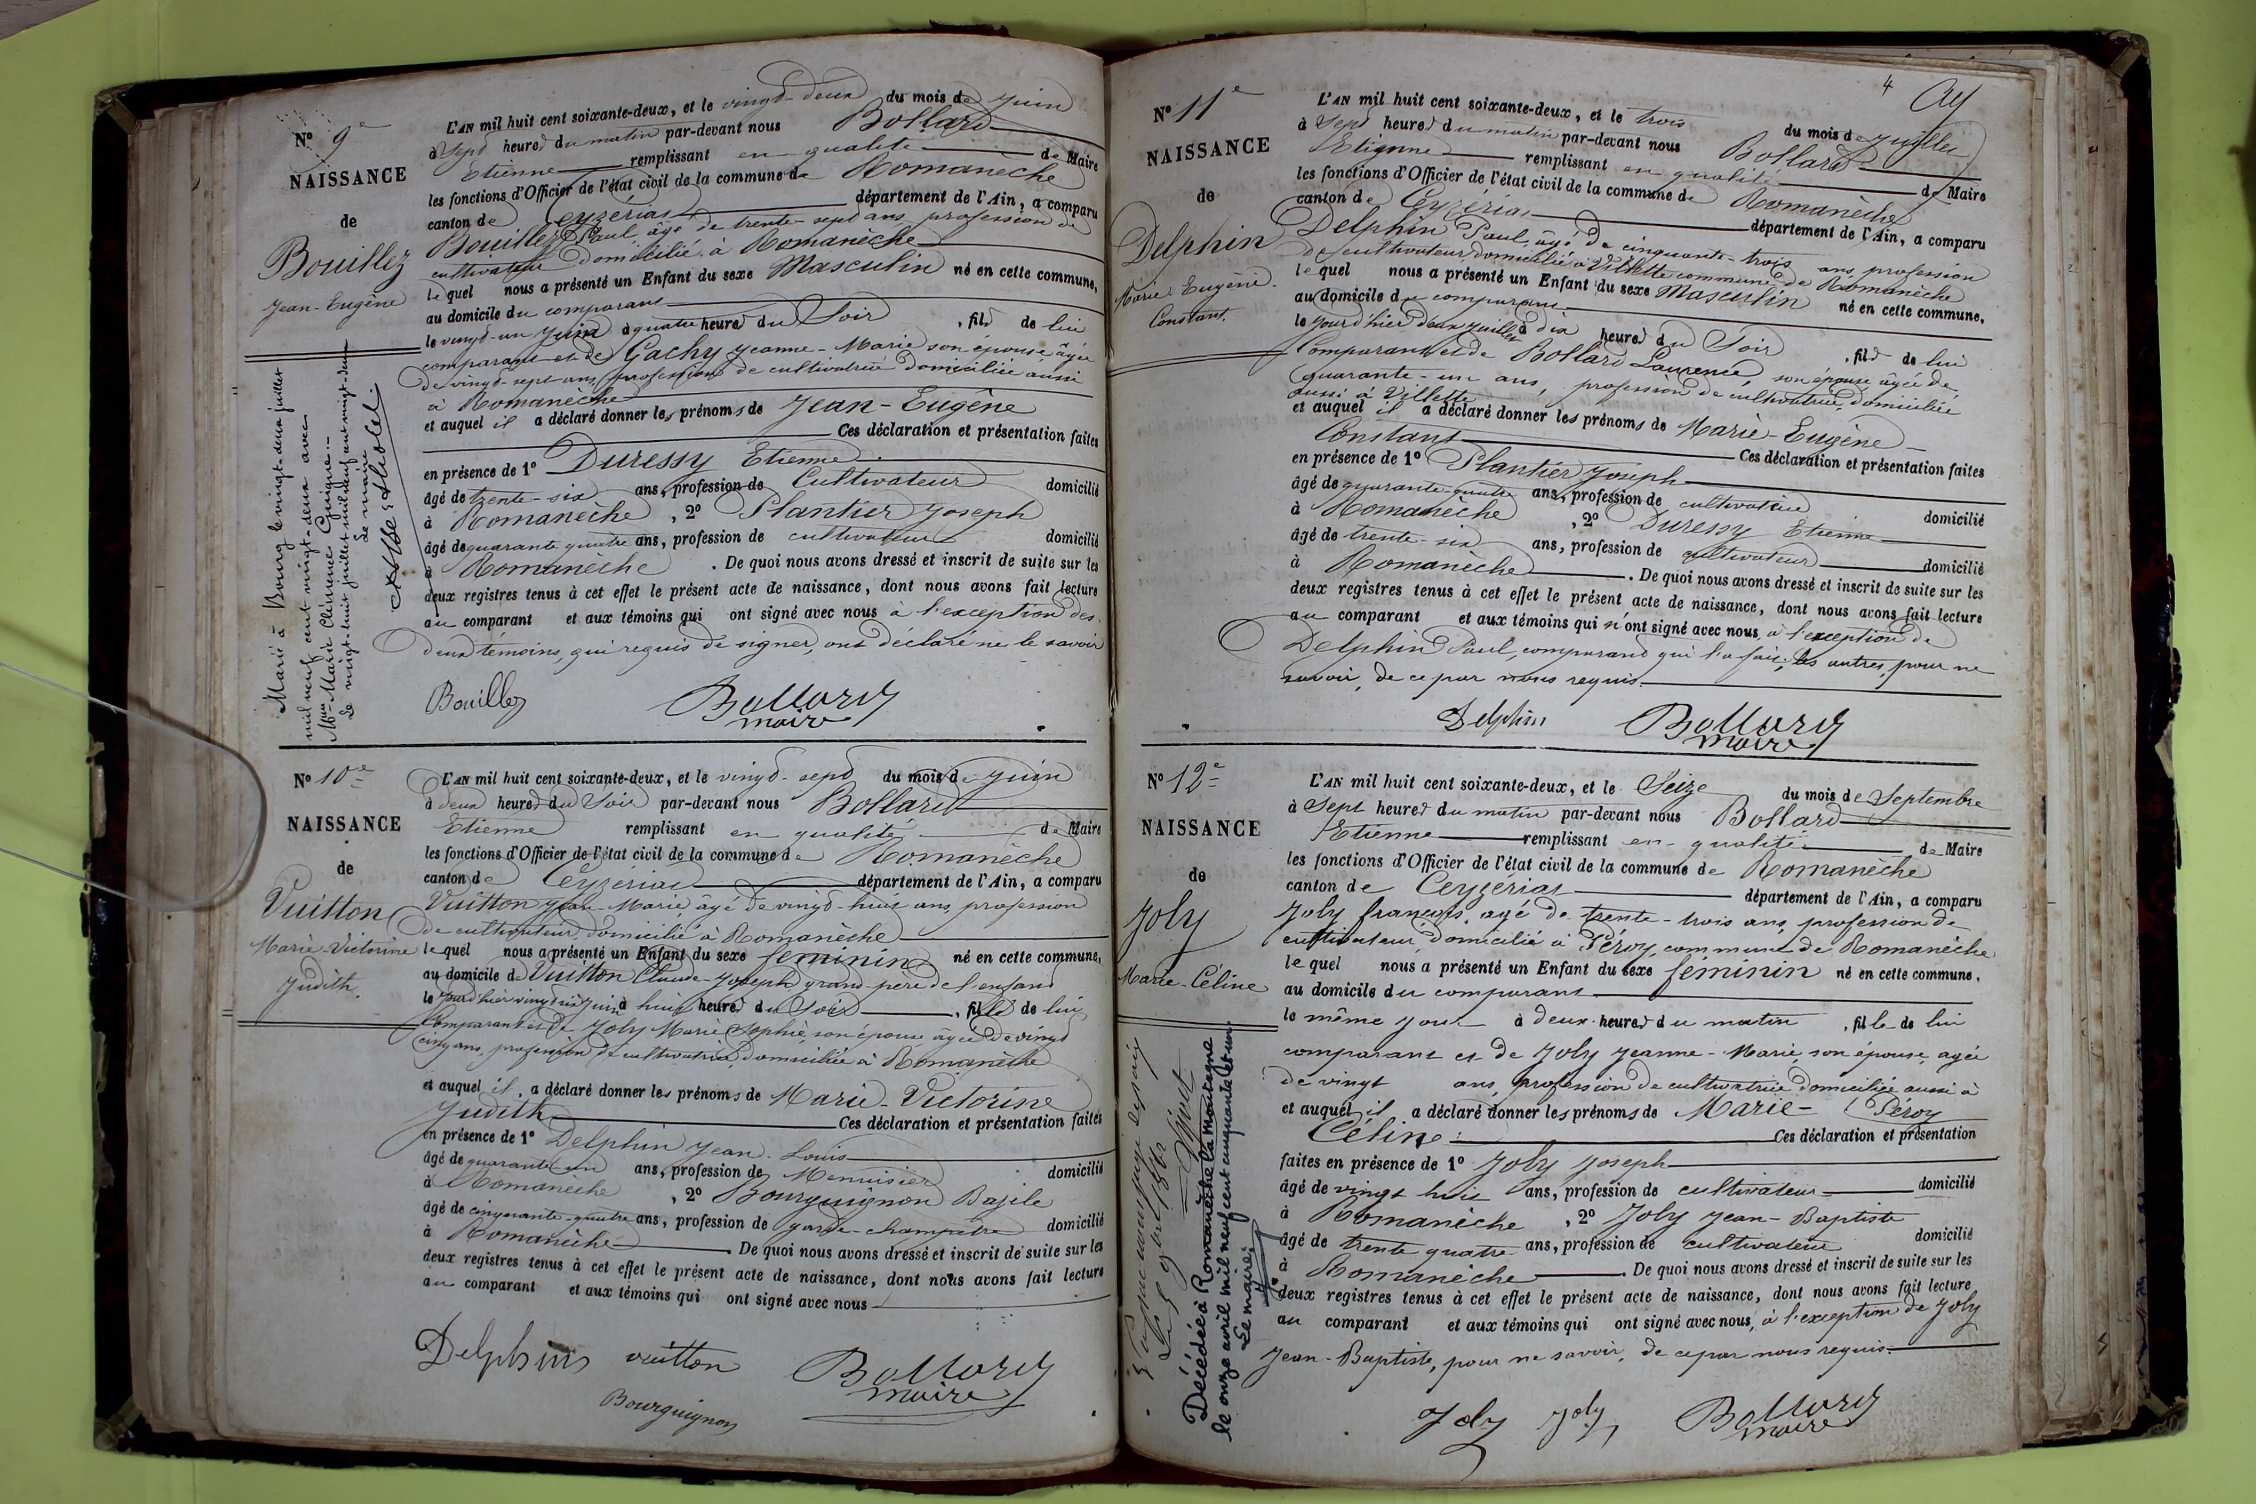 N° 9e
NAISSANCE
de
Bouillez
Jean-Eugène
Marié à Bourg le vingt-deux juillet
mil neuf cent vingt-deux avec
Marie Clémence Guigue.-
Le vingt-huit juillet mil neuf cent vingt-deux
Le maire
L'AN mil huit cent soixante-deux, et le vingt-deux du mois de Juin
à Sept heures du matin par-devant nous Bollard
Etienne remplissant en qualité de Maire
les fonctions d'Officier de l'état civil de la commune de Romanèche
canton de Ceyzériat département de l'Ain, a comparu
Bouillez Paul, âgé de trente-sept ans, profession de
cultivateur domicilié à Romanèche
lequel nous a présenté un Enfant du sexe Masculin né en cette commune,
au domicile du comparant
le vingt-un Juin à quatre heures du Soir , fils de lui
comparant et de Gachy Jeanne-Marie son épouse, âgée
de vingt-sept ans, profession de cultivatrice domiciliée aussi
à Romanèche
et auquel il a déclaré donner les prénoms de Jean-Eugène
Ces déclaration et présentation faites
en présence de 1° Duressy Etienne
âgé de trente-six ans, profession de Cultivateur domicilié
à Romanèche , 2° Plantier Joseph
âgé de quarante quatre ans, profession de cultivateur domicilié
à Romanèche . De quoi nous avons dressé et inscrit de suite sur les
deux registres tenus à cet effet le présent acte de naissance, dont nous avons fait lecture
au comparant et aux témoins qui ont signé avec nous à l'exception des
Deux témoins, qui requis de signer, ont déclaré ne le savoir
Bouillez Bollard
maire
N° 10e
NAISSANCE
de
Vuitton
Marie-Victorine
Judith.
L'AN mil huit cent soixante-deux, et le vingt-sept du mois de Juin
à deux heures du Soir par-devant nous Bollard
Etienne remplissant en qualité de Maire
les fonctions d'Officier de l'état civil de la commune de Romanèche
canton de Ceyzériat département de l'Ain, a comparu
Vuitton Jean-Marie, âgé de vingt-huit ans, profession
de cultivateur, domicilié à Romanèche
lequel nous a présenté un Enfant du sexe féminin né en cette commune,
au domicile de Vuitton Claude-Joseph grand-père de l'enfant
le jourd'hier vingt six Juin à huit heures du Soir , fille de lui
Comparant et de Joly Marie Sophie, son épouse âgée de vingt
cinq ans, profession de cultivatrice, domiciliée à Romanèche
et auquel il a déclaré donner les prénoms de Marie-Victorine
Judith Ces déclaration et présentation faites
en présence de 1° Delphin Jean-Louis
âgé de quarante-un ans, profession de Menuisier domicilié
à Romanèche , 2° Bourguignon Bazile
âgé de cinquante-quatre ans, profession de garde-champêtre domicilié
à Romanèche . De quoi nous avons dressé et inscrit de suite sur les
deux registres tenus à cet effet le présent acte de naissance, dont nous avons fait lecture
au comparant et aux témoins qui ont signé avec nous
Delphin vuitton Bollard
maire
Bourguignon
4
N° 11e
NAISSANCE
de
Delphin
Marie-Eugène
Constant.
L'AN mil huit cent soixante-deux, et le trois du mois de Juillet
à Sept heures du matin par-devant nous Bollard
Etienne remplissant en qualité de Maire
les fonctions d'Officier de l'état civil de la commune de Romanèche
canton de Ceyzériat département de l'Ain, a comparu
Delphin Paul, âgé de cinquante-trois ans, profession
de cultivateur, domicilié à Villette commune de Romanèche
lequel nous a présenté un Enfant du sexe Masculin né en cette commune,
au domicile du comparant
le jourd'hier deux Juillet à dix heures du Soir , fils de lui
Comparant et de Bollard Laurence, son épouse, âgée de
quarante-un ans, profession de cultivatrice, domiciliée
aussi à Villette
et auquel il a déclaré donner les prénoms de Marie-Eugène
Constant Ces déclaration et présentation faites
en présence de 1° Plantier Joseph
âgé de quarante-quatre ans, profession de cultivateur domicilié
à Romanèche , 2° Duressy Etienne
âgé de trente-six ans, profession de cultivateur domicilié
à Romanèche . De quoi nous avons dressé et inscrit de suite sur les
deux registres tenus à cet effet le présent acte de naissance, dont nous avons fait lecture
au comparant et aux témoins qui n'ont signé avec nous, à l'exception de
Delphin Paul, comparant qui l'a fait, les autres, pour ne
savoir, de ce par nous requis.
Delphin Bollard
maire
N° 12e
NAISSANCE
de
Joly
Marie-Céline
Décédée à Romanèche la montagne
le onze avril mil neuf cent cinquante et un.
Le maire:
L'AN mil huit cent soixante-deux, et le Seize du mois de Septembre
à Sept heures du matin par-devant nous Bollard
Etienne remplissant en qualité de Maire
les fonctions d'Officier de l'état civil de la commune de Romanèche
canton de Ceyzériat département de l'Ain, a comparu
Joly françois, âgé de trente-trois ans, profession de
cultivateur, domicilié à Péroy, commune de Romanèche
lequel nous a présenté un Enfant du sexe féminin né en cette commune,
au domicile du comparant
le même jour à deux heures du matin , fille de lui
comparant et de Joly Jeanne-Marie, son épouse, agée
de vingt ans, profession de cultivatrice domiciliée aussi à
Péroy
et auquel il a déclaré donner les prénoms de Marie-
Céline Ces déclaration et présentation
faites en présence de 1° Joly Joseph
âgé de vingt huit ans, profession de cultivateur domicilié
à Romanèche , 2° Joly Jean-Baptiste
âgé de trente quatre ans, profession de cultivateur domicilié
à Romanèche . De quoi nous avons dressé et inscrit de suite sur les
deux registres tenus à cet effet le présent acte de naissance, dont nous avons fait lecture
au comparant et aux témoins qui ont signé avec nous, à l'exception de Joly
Jean-Baptiste, pour ne savoir, de ce par nous requis.
Joly Joly Bollard
maire